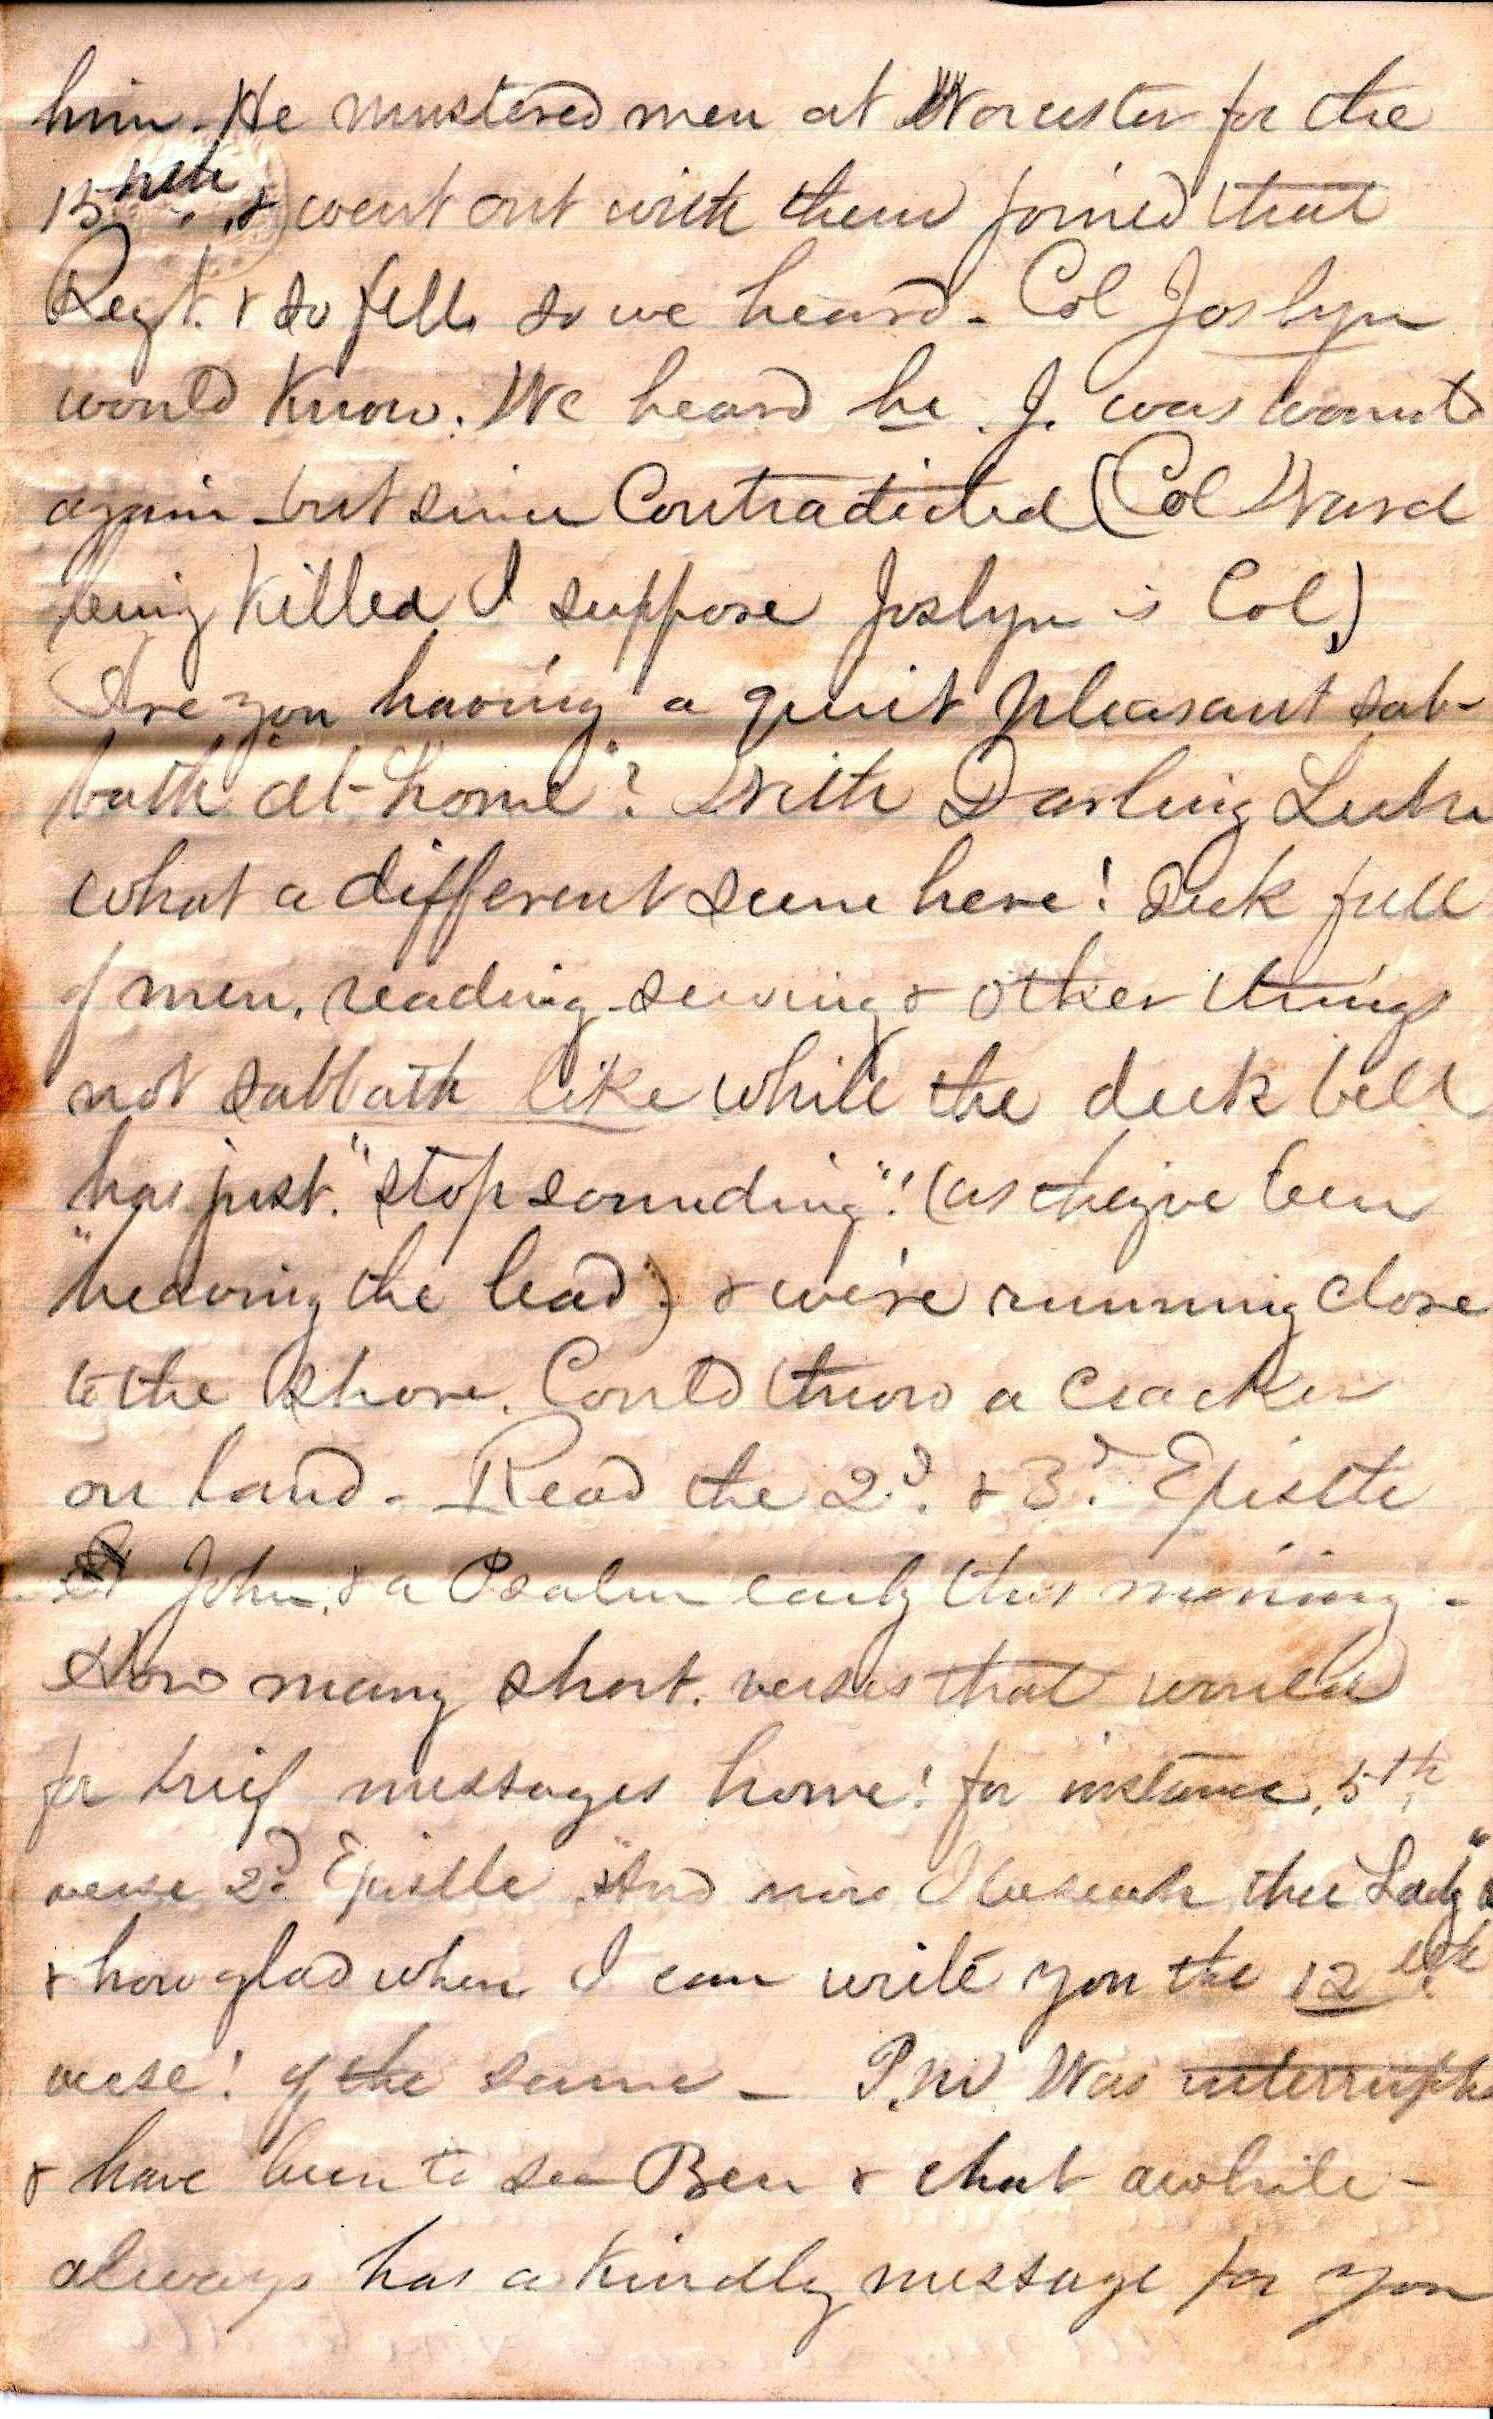 him. He mustered men at Worcester for the
15nth, & went out with them joined that
Regt. & so fell. so we heard - Col Joslyn
would know. We heard he. J. was wound
again but since Contradicted (Col Ward
being killed I suppose Joslyn is Col)
Are you having a quiet pleasant sab-
bath "at-home"? With Darling
what a different scene here! Deck full
of men, reading sewing & other things
not sabbath like while the deck bell
has just. "stop sounding"! (as they've been
"heaving the lead") & we're running close
to the shore. Could throw a cracker
on land - Read the 2d. & 3d. Epistle
John, & a Psalm early this morning -
How many short. verses that would
for brief messages home! for instance, 5th.
verse 2d. Epistle "And now I beseech thee Lady"
& how glad when I can write you the 12th
verse! of the same - P.M. Was interrupted
& have been to see Ben & chat awhile -
always has a kindly message for you